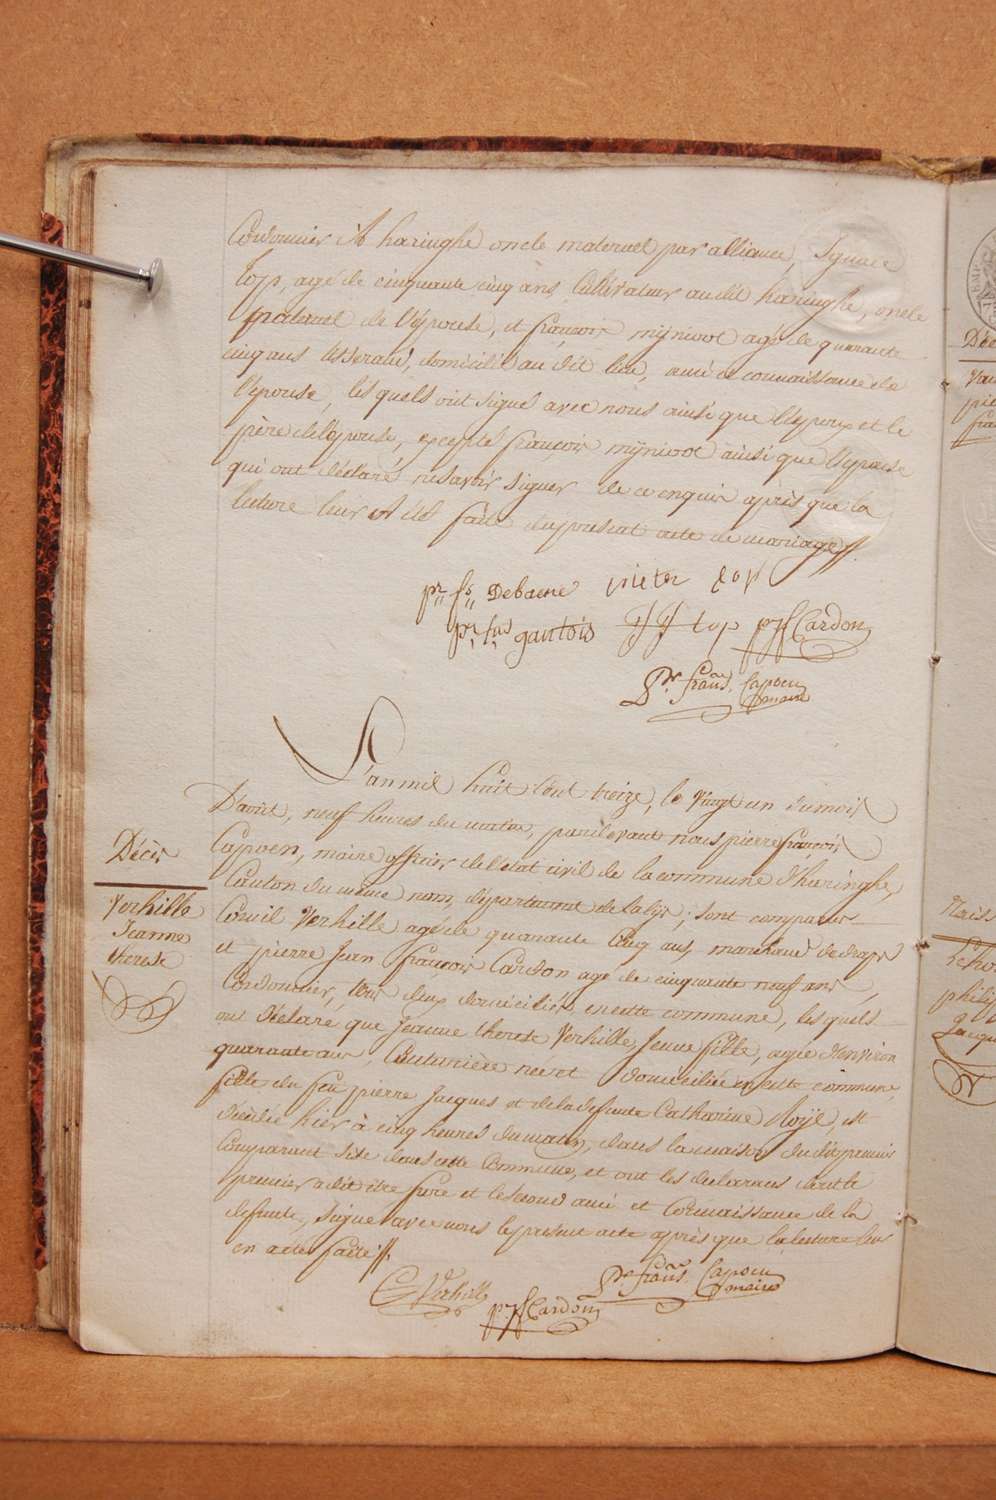 Cordonnier à haringhe oncle maternel par alliance, Ignace
Top, agé de cinquante cinq ans, Cultivateur audit haringhe, oncle
paternel de l'épouse, et françois mijnioot agé de quarante
cinq ans tisserand, domicilié audit lieu, ami et connaissance de
l'épouse, lesquels ont signé avec nous ainsi que l'époux et le
père de l'épouse, excepté françois mijnioot ainsi que l'épouse
qui ont déclaré ne savoir signer de ce enquis après que la
lecture leur a été faite du present acte de mariage //.
pr. fs. Debaene pieter top
pr. fns gantois top pjf Cardon
Pre frans. Capoen
maire
L'an mil huit Cent treize, le vingt un du mois
D'avril, neuf heures du matin, pardevant nous pierre françois
Capoen, maire officier de l'etat civil de la commune d'haringhe,
Canton du même nom, département de la lys; sont comparus
Corneil Verhille agé de quarante Cinq ans, marchand de draps
et pierre Jean françois Cardon agé de cinquante neuf ans,
Cordonnier, tous deux domiciliés en cette commune, les quels
ont Déclaré que Jeanne therese Verhille, Jeune fille, agée d'environ
quarante ans, Couturière née et domiciliée en cette commune,
fille du feu pierre Jacques et de la defunte Catharine, est
décédée hier à cinq heures du matin, dans la maison du dit premier
Comparant sise dans cette Commune, et ont les declarans dont le
premier a dit être frere et le second ami et Connaissance de la
defunte, signé avec nous le present acte après que la lecture leur
en a été faite //.
C Verhille
pjf Cardon
Pre frans. Capoen
maire
Décès
Verhille
Jeanne
therese
Déc
pie
fra
Naiss
philip
Jacqu